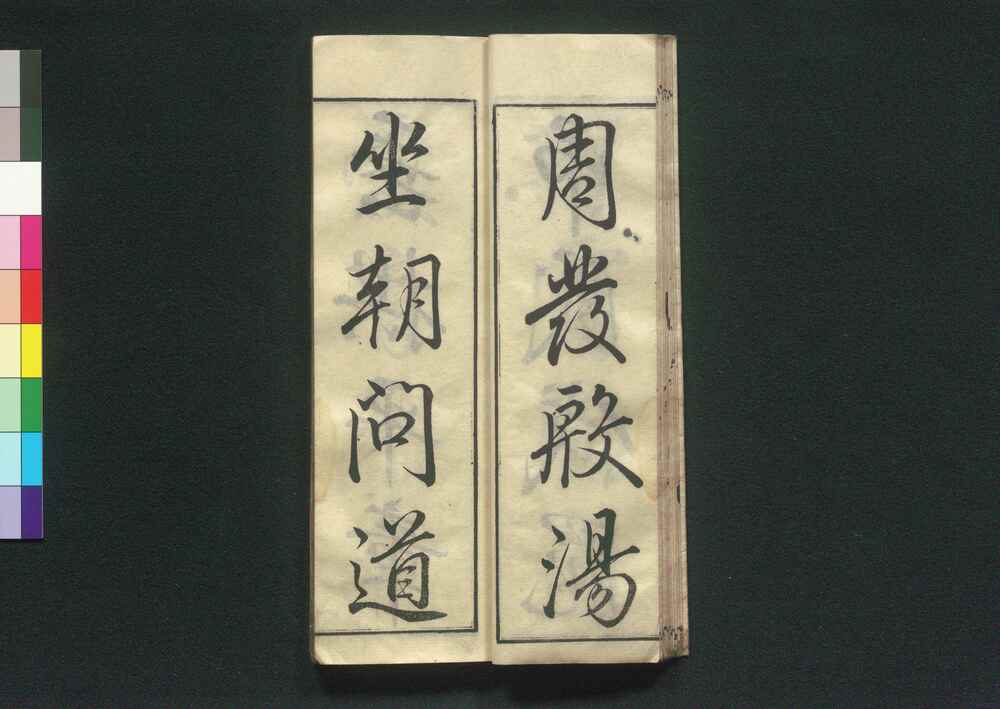 周發殷湯
坐朝問道